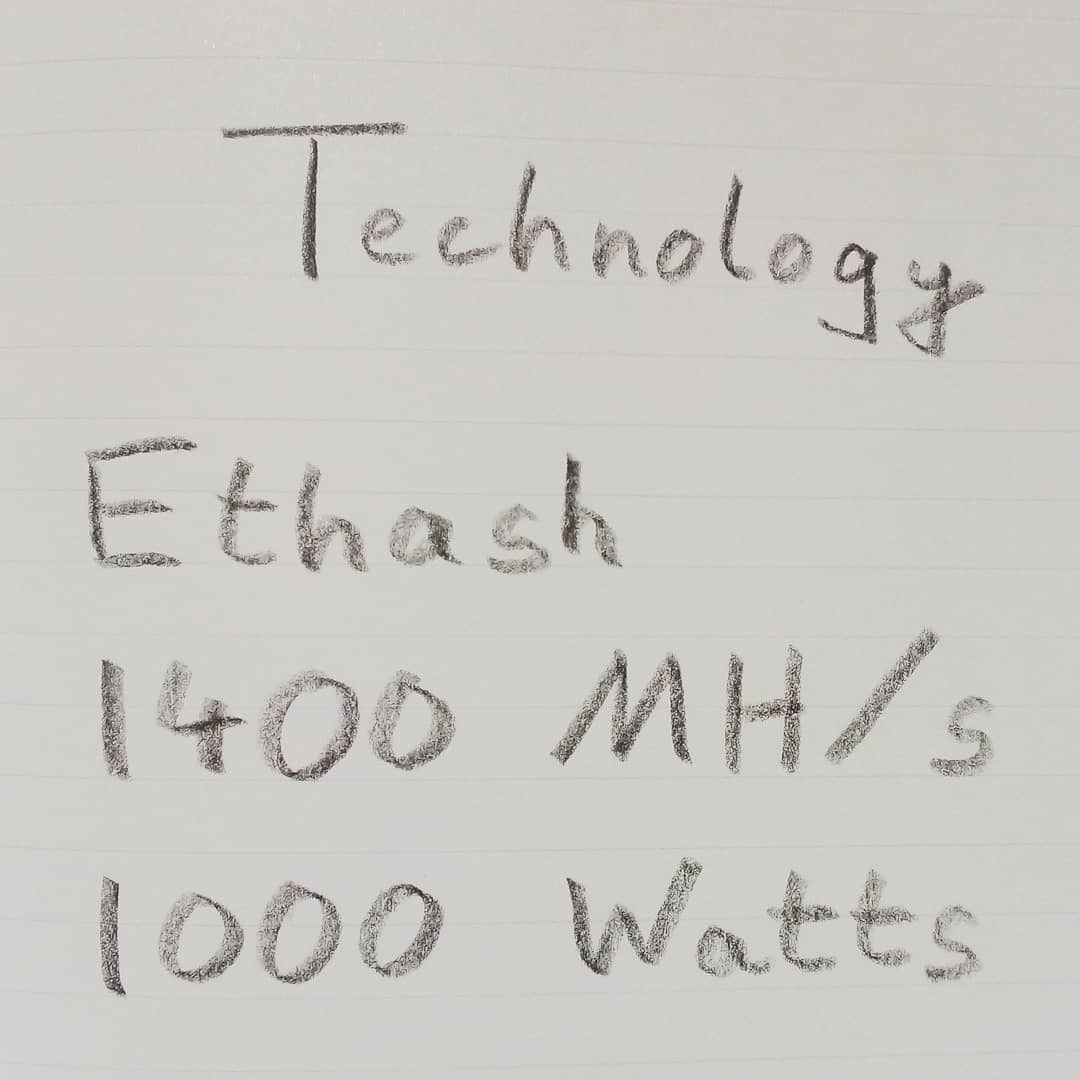 Technology
Ethash
1400 MH/s
1000 Watts